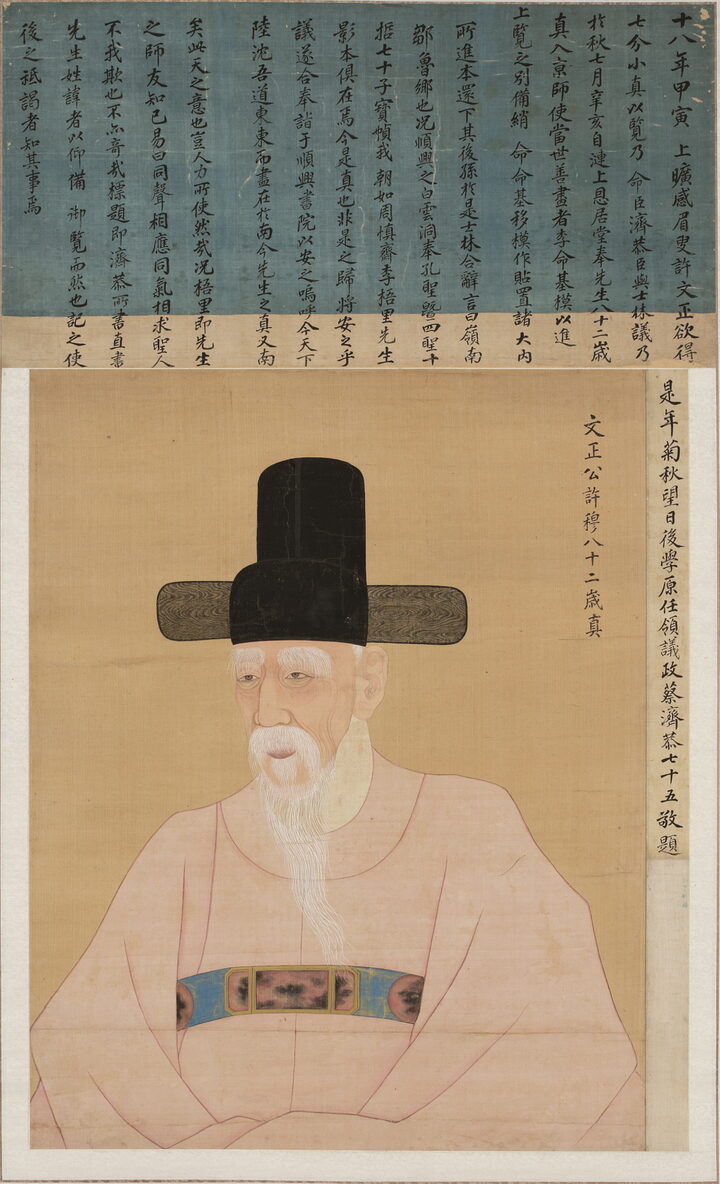 十八年甲寅 上曠感眉叟許文正欲得
七分小真以覽乃 命臣濟恭臣與士林議乃
於秋七月辛亥自漣上恩居堂奉先生八十二歲
真入京師使當世善畫者李命基模以進
上覽之別備綃 命命基移模作貼置諸大内
所進本還下其後孫於是士林合辭言曰嶺南
鄒魯鄉也况順興之白雲洞奉孔聖曁四聖十
哲七十子寶幀我 朝如周慎齋李梧里先生
影本俱在焉今是真也非是之歸將安之乎
議遂合奉詣于順興書院以安之嗚呼今天下
陸沈吾道東東而盡在於南今先生之真又南
矣此天之意也豈人力所使然哉况梧里即先生
之師友知己易曰同聲相應同氣相求聖人
不我欺也不亦奇哉標題即濟恭所書直書
先生姓諱者以仰備 御覽而然也記之使
後之祗謁者知其事焉
是年菊秋望日後學原任領議政蔡濟恭七十五敬題
文正公許穆八十二歲真